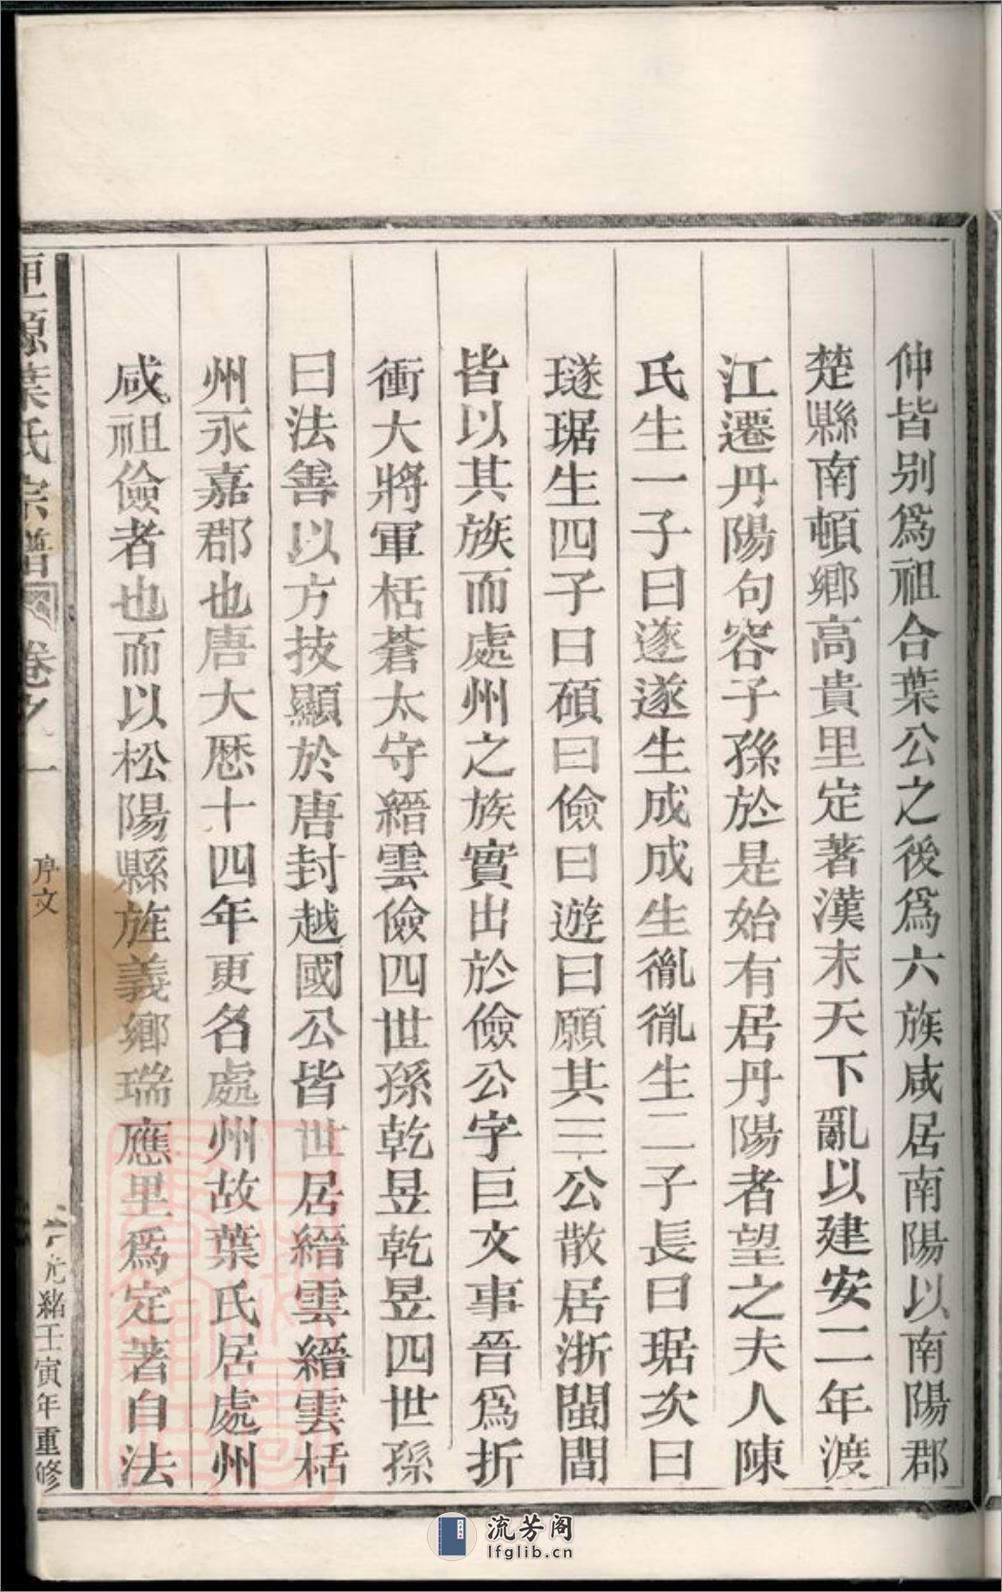 仲皆别爲祖合葉公之後爲六族咸居南陽以南陽郡
楚縣南頓鄉高貴里定著漢末天下亂以建安二年渡
江遷丹陽句容子孫於是始有居丹陽者望之夫人陳
氏生一子曰遂遂生成成生㣧㣧生二子長曰琚次曰
璲琚生四子曰碩曰儉曰遊曰願其三公散居浙閩間
皆以其族而處州之族實出於儉公字巨文事晉爲折
衝大將軍栝蒼太守縉雲儉四世孫乾昱乾昱四世孫
曰法善以方技顯於唐封越國公皆世居縉雲縉雲栝
州永嘉郡也唐大厯十四年更名處州故葉氏居處州
咸祖儉者也而以松陽縣旌義鄉瑞應里爲定著自法
源葉氏宗譜 卷之一 序文 光緒壬寅年重修
流芳阁
lfglib.cn